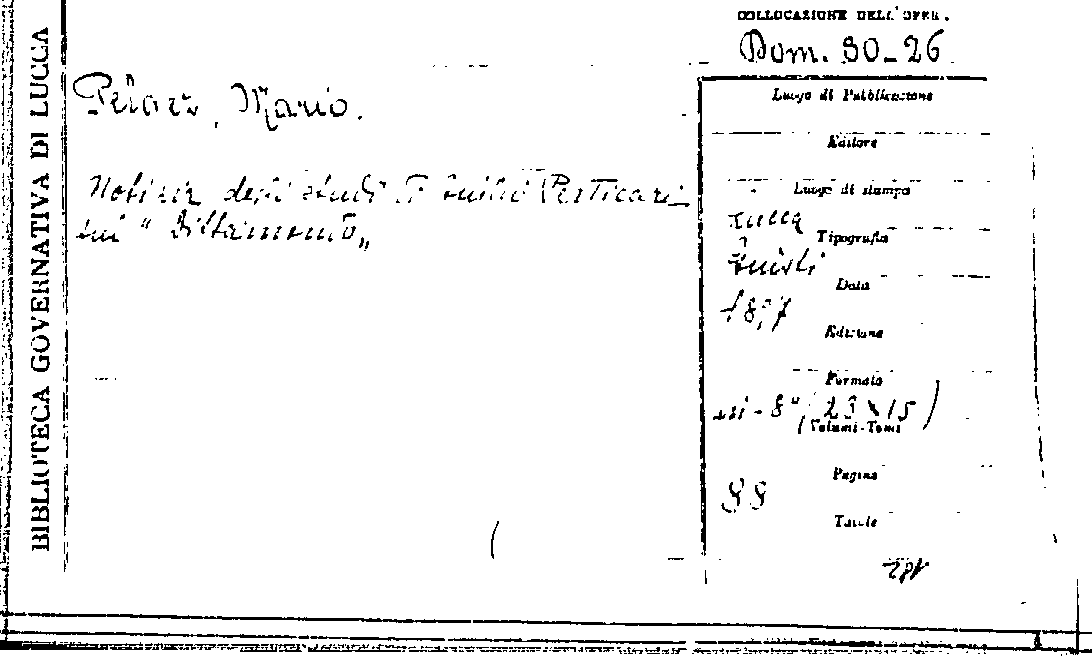 BIBLIOTECA GOVERNATIVA DI LUCCA
COLLOCAZIONE DELL'OPER.
Dom. 30-26
Pelaez, Mario.
Notizia degli studi di Giulio Perticari
sui "Dittamondo"
Luogo di Pubblicazione
Editore
Luogo di stampa
Lucca
Tipografia
Giusti
Data
Edizione
Formato
in-8° (23x15)
(Volumi-Tomi
Pagine
88
Tavole